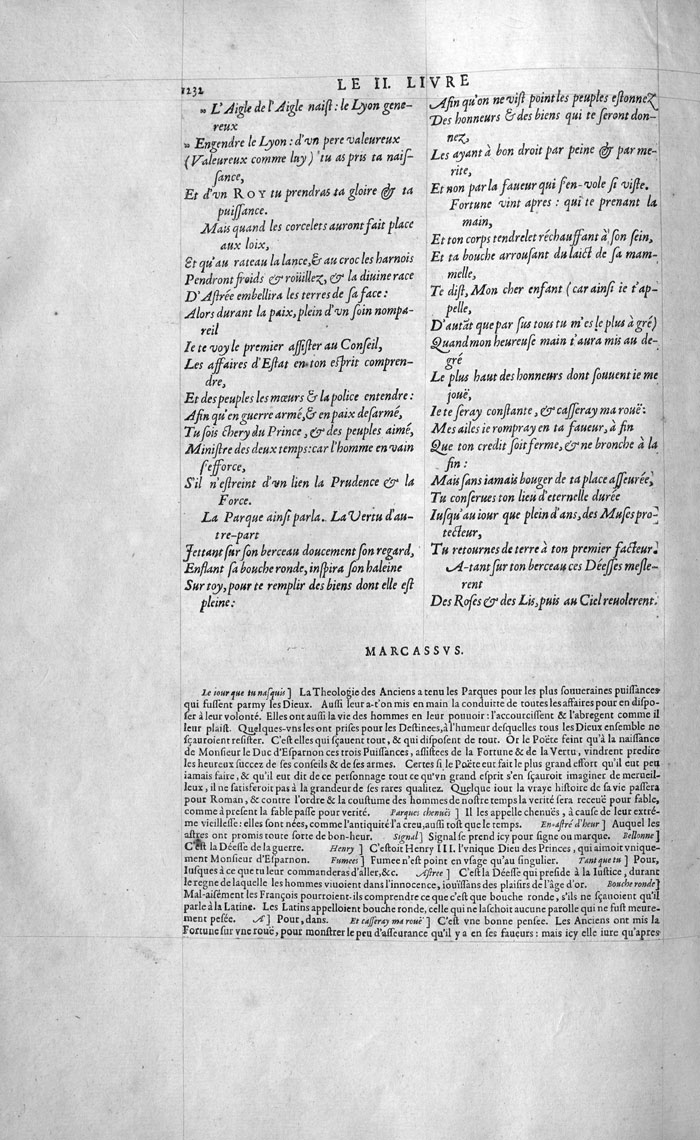 1232
LE II. LIVRE
» L'Aigle de l'Aigle naist : le Lyon gene-
reux
» Engendre le Lyon : d'vn pere valeureux
(Valeureux comme luy) tu as pris ta naiſ-
ſance,
Et d'vn ROY tu prendras ta gloire & ta
puiſſance.
Mais quand les corcelets auront fait place
aux loix,
Et qu'au rateau la lance, & au croc les harnois
Pendront froids & roüillez, & la diuine race
D'Aſtrée embellira les terres de ſa face :
Alors durant la paix, plein d'vn ſoin nompa-
reil
Ie te voy le premier aſſiſter au Conſeil,
Les affaires d'Eſtat en ton eſprit compren-
dre,
Et des peuples les mœurs & la police entendre :
Afin qu'en guerre armé, & en paix deſarmé,
Tu ſois chery du Prince, & des peuples aimé,
Miniſtre des deux temps : car l'homme en vain
s'efforce,
S'il n'eſtreint d'vn lien la Prudence & la
Force.
La Parque ainſi parla. La Vertu d'au-
tre-part
Jettant ſur ſon berceau doucement ſon regard,
Enflant ſa bouche ronde, inſpira ſon haleine
Sur toy, pour te remplir des biens dont elle eſt
pleine :
Afin qu'on ne viſt point les peuples eſtonnez
Des honneurs & des biens qui te ſeront don-
nez,
Les ayant à bon droit par peine & par me-
rite,
Et non par la faueur qui s'en-vole ſi viſte.
Fortune vint apres : qui te prenant la
main,
Et ton corps tendrelet réchauffant à ſon ſein,
Et ta bouche arrouſant du laict de ſa mam-
melle,
Te diſt, Mon cher enfant (car ainſi ie t'ap-
pelle,
D'autãt que par ſus tous tu m'es le plus à gré)
Quand mon heureuſe main t'aura mis au de-
gré
Le plus haut des honneurs dont ſouuent ie me
jouë,
Ie te ſeray conſtante, & caſſeray ma rouë :
Mes ailes ie rompray en ta faueur, à fin
Que ton credit ſoit ferme, & ne bronche à la
fin :
Mais ſans iamais bouger de ta place aſſeurée,
Tu conſerues ton lieu d'eternelle durée
Iuſqu'au iour que plein d'ans, des Muſes pro-
tecteur,
Tu retournes de terre à ton premier facteur.
A-tant ſur ton berceau ces Déeſſes meſle-
rent
Des Roſes & des Lis, puis au Ciel reuolerent.
MARCASSVS.
Le iour que tu naſquis ] La Theologie des Anciens a tenu les Parques pour les plus ſouueraines puiſſances
qui fuſſent parmy les Dieux. Auſſi leur a-t'on mis en main la conduitte de toutes les affaires pour en diſpo-
ſer à leur volonté. Elles ont auſſi la vie des hommes en leur pouuoir : l'accourciſſent & l'abregent comme il
leur plaiſt. Quelques-vns les ont priſes pour les Deſtinees, à l'humeur deſquelles tous les Dieux enſemble ne
ſçauroient reſiſter. C'eſt elles qui ſçauent tout, & qui diſpoſent de tout. Or le Poëte feint qu'à la naiſſance
de Monſieur le Duc d'Eſparnon ces trois Puiſſances, aſſiſtees de la Fortune & de la Vertu, vindrent predire
les heureux ſuccez de ſes conſeils & de ſes armes. Certes ſi le Poëte eut fait le plus grand effort qu'il eut peu
iamais faire, & qu'il eut dit de ce perſonnage tout ce qu'vn grand eſprit s'en ſçauroit imaginer de merueil-
leux, il ne ſatisferoit pas à la grandeur de ſes rares qualitez. Quelque iour la vraye hiſtoire de ſa vie paſſera
pour Roman, & contre l'ordre & la couſtume des hommes de noſtre temps la verité ſera receuë pour fable,
comme à preſent la fable paſſe pour verité. Parques chenuës ] Il les appelle chenuës, à cauſe de leur extré-
me vieilleſſe : elles ſont nées, comme l'antiquité l'a creu, auſſi toſt que le temps. En-aſtré d'heur ] Auquel les
aſtres ont promis toute ſorte de bon-heur. Signal ] Signal ſe prend icy pour ſigne ou marque. Bellonne ]
C'eſt la Déeſſe de la guerre. Henry ] C'eſtoit Henry III. l'vnique Dieu des Princes, qui aimoit vnique-
ment Monſieur d'Eſparnon. Fumees ] Fumee n'eſt point en vſage qu'au ſingulier. Tant que tu ] Pour,
Iuſques à ce que tu leur commanderas d'aller, &c. Aſtree ] C'eſt la Déeſſe qui preſide à la Iuſtice, durant
le regne de laquelle les hommes viuoient dans l'innocence, iouïſſans des plaiſirs de l'âge d'or. Bouche ronde ]
Mal-aiſément les François pourroient-ils comprendre ce que c'eſt que bouche ronde, s'ils ne ſçauoient qu'il
parle à la Latine. Les Latins appelloient bouche ronde, celle qui ne laſchoit aucune parolle qui ne fuſt meure-
ment peſée. A ] Pour, dans. Et caſſeray ma rouë ] C'eſt vne bonne penſee. Les Anciens ont mis la
Fortune ſur vne rouë, pour monſtrer le peu d'aſſeurance qu'il y a en ſes faueurs : mais icy elle iure qu'apres